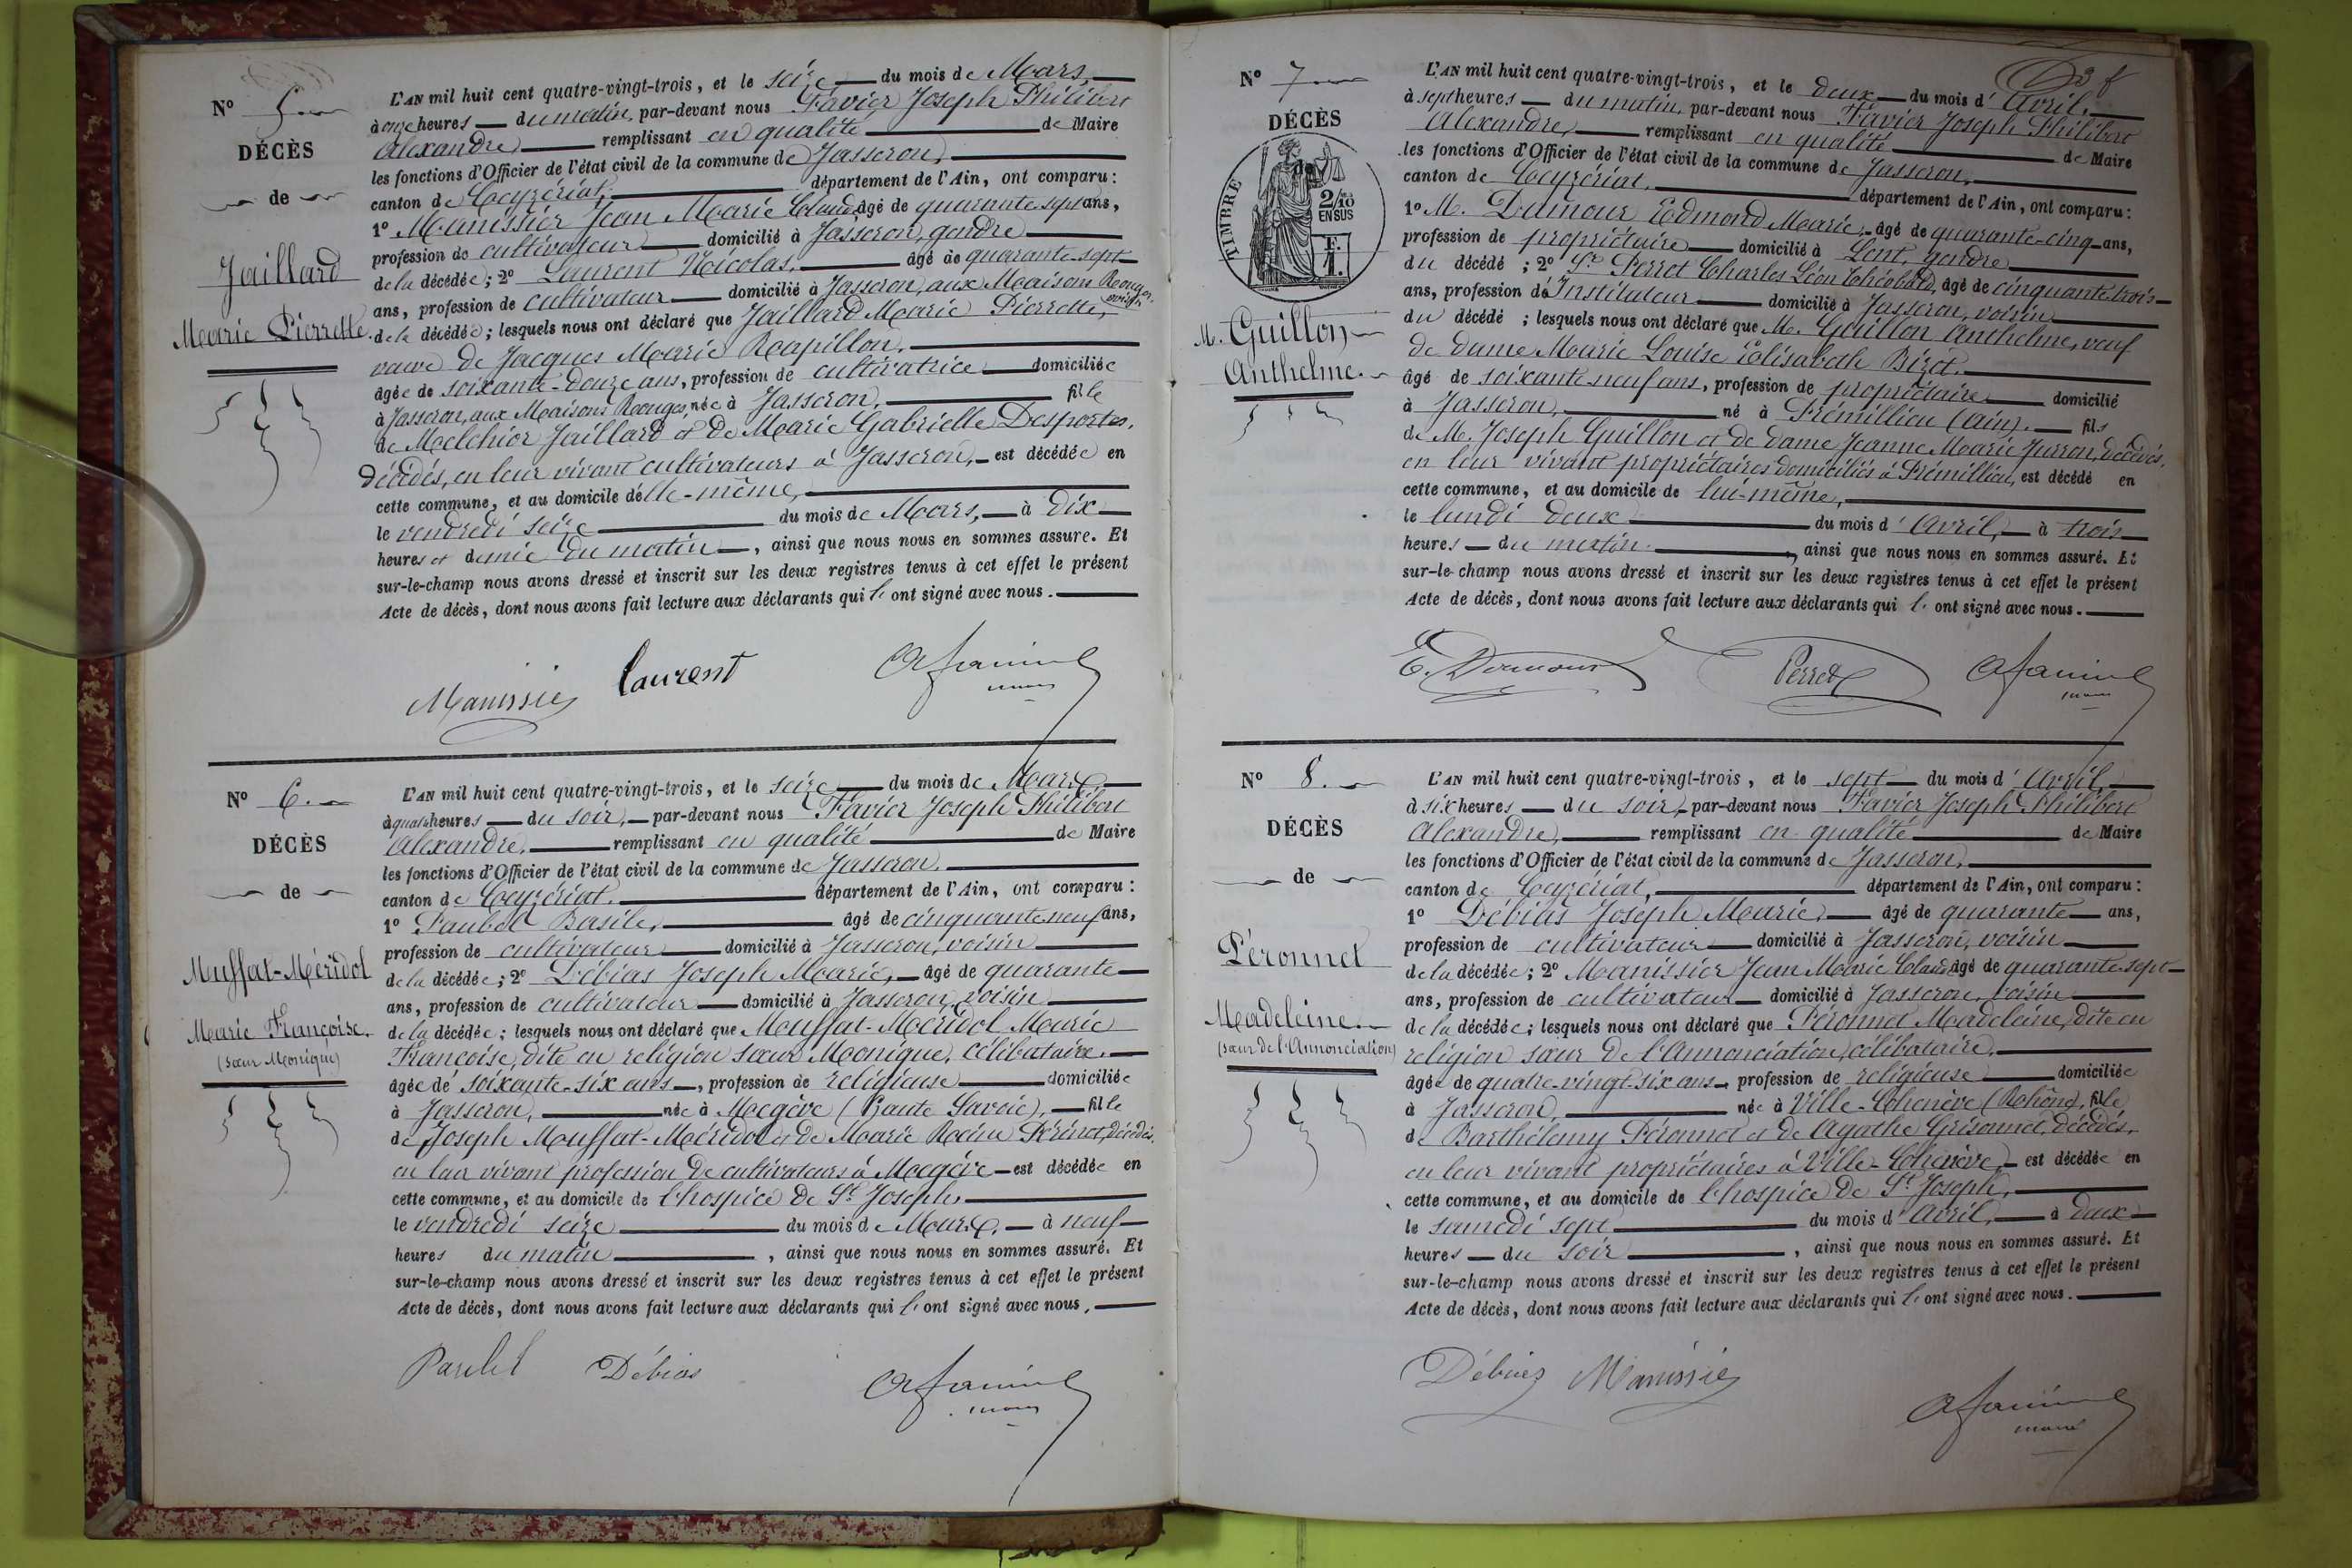 N° 5.
DÉCÈS
de
Jaillard
Marie Pierrette.
L'AN mil huit cent quatre-vingt-trois, et le seize du mois de Mars,
à onze heures du matin, par-devant nous Favier Joseph Philibert
Alexandre, remplissant en qualité de Maire
les fonctions d'Officier de l'état civil de la commune de Jasseron,
canton de Ceyzériat, département de l'Ain, ont comparu :
1° Manissier Jean Marie Claude, âgé de quarante sept ans,
profession de cultivateur domicilié à Jasseron, gendre
de la décédée; 2° Laurent Nicolas, âgé de quarante-sept
ans, profession de cultivateur domicilié à Jasseron, aux Maisons Rouges, voisin
de la décédée; lesquels nous ont déclaré que Jaillard Marie Pierrette,
veuve de Jacques Marie Rapillon,
âgée de soixante-douze ans, profession de cultivatrice domiciliée
à Jasseron, aux Maisons Rouges, née à Jasseron, fille
de Melchior Jaillard et de Marie Gabrielle Desportes,
décédés, en leur vivant cultivateurs à Jasseron, est décédée en
cette commune, et au domicile d'elle-même,
le vendredi seize du mois de Mars, à dix
heures et demie du matin, ainsi que nous nous en sommes assuré. Et
sur-le-champ nous avons dressé et inscrit sur les deux registres tenus à cet effet le présent
Acte de décès, dont nous avons fait lecture aux déclarants qui l' ont signé avec nous.
Manissier Laurent
maire
N° 6.
DÉCÈS
de
Muffat-Méridol
Marie Françoise.
(sœur Monique)
L'AN mil huit cent quatre-vingt-trois, et le seize du mois de Mars,
à quatre heures du soir, par-devant nous Favier Joseph Philibert
Alexandre, remplissant en qualité de Maire
les fonctions d'Officier de l'état civil de la commune de Jasseron,
canton de Ceyzériat, département de l'Ain, ont comparu :
1° Paubel Basile, âgé de cinquante-neuf ans,
profession de cultivateur domicilié à Jasseron, voisin
de la décédée; 2° Débias Joseph Marie, âgé de quarante
ans, profession de cultivateur domicilié à Jasseron, voisin
de la décédée; lesquels nous ont déclaré que Mouffat-Méridol Marie
Françoise, dite en religion sœur Monique, célibataire.
âgée de soixante-six ans, profession de religieuse domiciliée
à Jasseron, née à Megève (Haute Savoie), fille
de Joseph Mouffat-Méridol et de Marie Reine décédés,
en leur vivant profession de cultivateurs à Megève est décédée en
cette commune, et au domicile de l'hospice de St Joseph,
le vendredi seize du mois de Mars, à neuf
heures du matin, ainsi que nous nous en sommes assuré. Et
sur-le-champ nous avons dressé et inscrit sur les deux registres tenus à cet effet le présent
Acte de décès, dont nous avons fait lecture aux déclarants qui l' ont signé avec nous.
Débias
maire
N° 7
DÉCÈS
de
TIMBRE
2/10
EN SUS
F.
1.
M. Guillon
Anthelme.
L'AN mil huit cent quatre-vingt-trois, et le deux du mois d'Avril,
à sept heures du matin, par-devant nous Favier Joseph Philibert
Alexandre, remplissant en qualité de Maire
les fonctions d'Officier de l'état civil de la commune de Jasseron,
canton de Ceyzériat, département de l'Ain, ont comparu :
1° M. Damour Edmond Marie, âgé de quarante-cinq ans,
profession de propriétaire domicilié à Lent, gendre
du décédé; 2° Sr Perret Charles Léon Théobald, âgé de cinquante-trois
ans, profession d'Instituteur domicilié à Jasseron, voisin
du décédé; lesquels nous ont déclaré que M. Guillon Anthelme, veuf
de dame Marie Louise Elisabeth Bizot,
âgé de soixante-neuf ans, profession de propriétaire domicilié
à Jasseron, né à Prémillieu (Ain), fils
de M. Joseph Guillon et de dame Jeanne Marie Jurron, décédés,
en leur vivant propriétaires domiciliés à Prémillieu, est décédé en
cette commune, et au domicile de lui-même,
le lundi deux du mois d'Avril, à trois
heures du matin, ainsi que nous nous en sommes assuré. Et
sur-le-champ nous avons dressé et inscrit sur les deux registres tenus à cet effet le présent
Acte de décès, dont nous avons fait lecture aux déclarants qui l' ont signé avec nous.
E. Damour Perret
maire
N° 8.
DÉCÈS
de
Péronnet
Madeleine.
(sœur de l'Annonciation)
L'AN mil huit cent quatre-vingt-trois, et le sept du mois d'Avril,
à six heures du soir, par-devant nous Favier Joseph Philibert
Alexandre, remplissant en qualité de Maire
les fonctions d'Officier de l'état civil de la commune de Jasseron,
canton de Ceyzériat, département de l'Ain, ont comparu :
1° Débias Joseph Marie, âgé de quarante ans,
profession de cultivateur domicilié à Jasseron, voisin
de la décédée; 2° Manissier Jean Marie Claude, âgé de quarante-sept
ans, profession de cultivateur domicilié à Jasseron, voisin
de la décédée; lesquels nous ont déclaré que Péronnet Madeleine, dite en
religion sœur de l'Annonciation, célibataire,
âgée de quatre-vingt-six ans, profession de religieuse domiciliée
à Jasseron, née à Ville-Chenève (Rhône), fille
de Barthélemy Péronnet et de Agathe Grisonnet, décédés,
en leur vivant propriétaires à Ville-Chenève, est décédée en
cette commune, et au domicile de l'hospice de St Joseph,
le samedi sept du mois d'Avril, à deux
heures du soir, ainsi que nous nous en sommes assuré. Et
sur-le-champ nous avons dressé et inscrit sur les deux registres tenus à cet effet le présent
Acte de décès, dont nous avons fait lecture aux déclarants qui l' ont signé avec nous.
Débias Manissier
maire